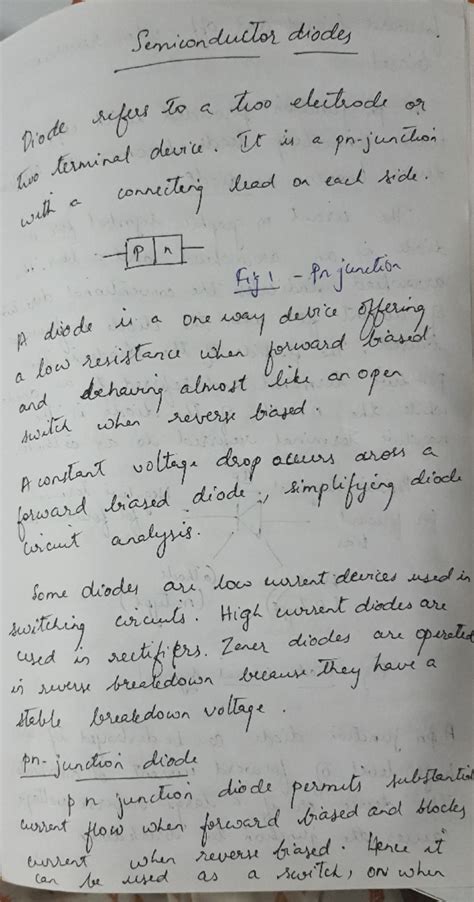 Semiconductor diodes
Diode refers to a two electrode or
two terminal device. It is a pn-junction
with a connecting lead on each side.
p n
Fig 1 - pn junction
A diode is a one way device offering
a low resistance when forward biased.
and behaving almost like an open
switch when reverse biased.
A constant voltage drop occurs across a
forward biased diode, simplifying diode
circuit analysis.
Some diodes are low current devices used in
switching circuits. High current diodes are
used in rectifiers. Zener diodes are operated
in reverse breakdown because they have a
stable breakdown voltage.
pn-junction diode
p n junction diode permits substantial
current flow when forward biased and blocks
current when reverse biased. Hence it
can be used as a switch, on when